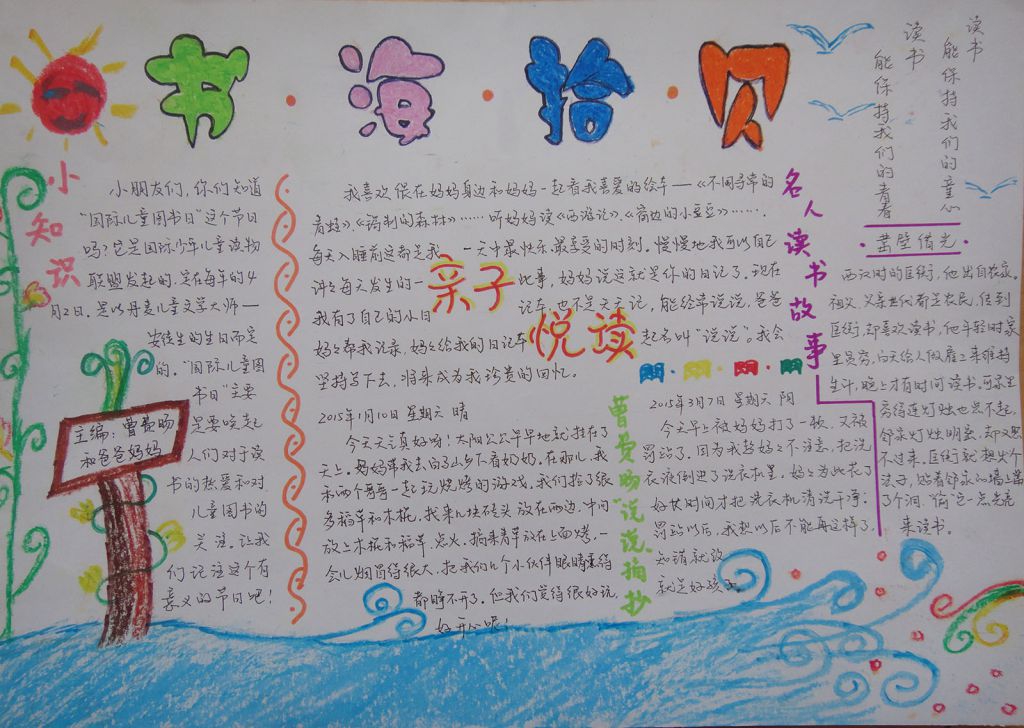 书·海·拾·贝
读书
能保持我们的童心
读书
能保持我们的青春
小知识
小朋友们，你们知道
“国际儿童图书日”这个节日
吗？它是国际少年儿童读物
联盟发起的，定在每年的4
月2日，是以丹麦儿童文学大师—
安徒生的生日而定
的。“国际儿童图
书日”主要
是要唤起
人们对于读
书的热爱和对
儿童图书的
关注。让我
们记住这个有
意义的节日吧！
主编：曹
和爸爸妈妈
我喜欢偎在妈妈身边和妈妈一起看我喜爱的绘本—《不同寻常的
青蛙》、《的森林》……听妈妈读《西游记》、《窗边的小豆豆》……，
每天入睡前这都是我一天中最快乐、最享受的时刻，慢慢地我可以自己
讲讲每天发生的一些事，妈妈说这就是你的日记了。现在
我有了自己的小日记本，也不是天天记，能经常说说，爸爸
妈妈帮我记录，妈妈给我的日记本起名叫“说说”。我会
坚持写下去，将来成为我珍贵的回忆。
亲子
悦读
2015年1月10日 星期六 晴
今天天气真好啊！太阳公公早早地就挂在了
天上。妈妈带我去白了山乡下看奶奶。在那儿，我
和两个哥哥一起玩烧烤的游戏，我们拾了很
多稻草和木棍，找来几块砖头放在两边，中间
放上木棍和稻草，点火，摘来青草放在上面烤，一
会儿烟冒得很大，把我们几个小伙伴眼睛熏得
都睁不开了。但我们觉得很好玩，
好开心呢！
“说说”摘抄
2015年3月7日 星期六 阴
今天早上被妈妈打了一顿，又被
罚站了。因为我趁妈妈不注意，把洗
衣液倒进了洗衣机里。妈妈为此花了
好长时间才把洗衣机清洗干净。
罚站以后，我想以后不能再这样了，
知错就改
就是好孩子。
名人读书故事
·凿壁借光·
西汉时的匡衡，他出自农家。
祖父、父亲世代都是农民，传到
匡衡，却喜欢读书，他年轻时家
里贫穷，白天给人做雇工来维持
生计，晚上才有时间读书。可家里
穷得连灯烛也点不起，
邻家灯烛明亮，却又照
不过来。匡衡就想出个
法子，贴着邻家的墙上凿
了个洞，“偷”它一点光亮
来读书。